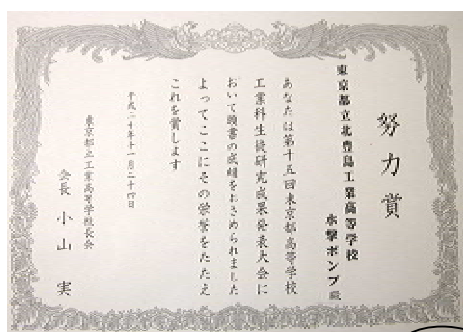 努力賞
東京都立北豊島工業高等学校
水撃ポンプ 殿
あなたは第十五回東京都高等学校
工業科生徒研究成果発表大会に
おいて頭書の成績をおさめられました
よってここにその栄誉をたたえ
これを賞します
平成二十年十一月二十四日
東京都立工業高等学校長会
会長 小山 実